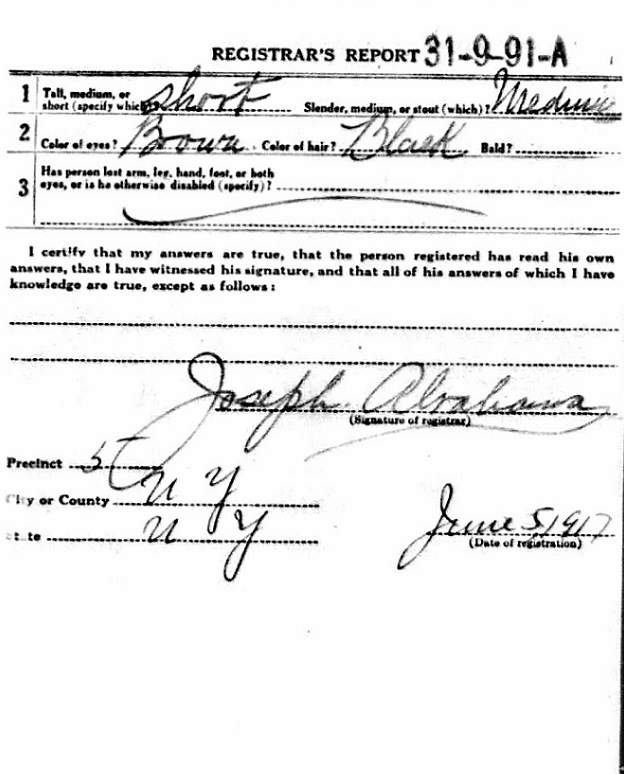 REGISTRAR'S REPORT 31-9-91-A
1 Tall, medium, or short (specify which)? Short Slender, medium, or stout (which)? Medium
2 Color of eyes? Brown Color of hair? Black Bald?
3 Has person lost arm, leg, hand, foot, or both
eyes, or is he otherwise disabled (specify)?
I certify that my answers are true, that the person registered has read his own
answers, that I have witnessed his signature, and that all of his answers of which I have
knowledge are true, except as follows:
Joseph Abrahams
(Signature of registrar)
Precinct 5
City or County N Y
State N Y June 5, 1917
(Date of registration)